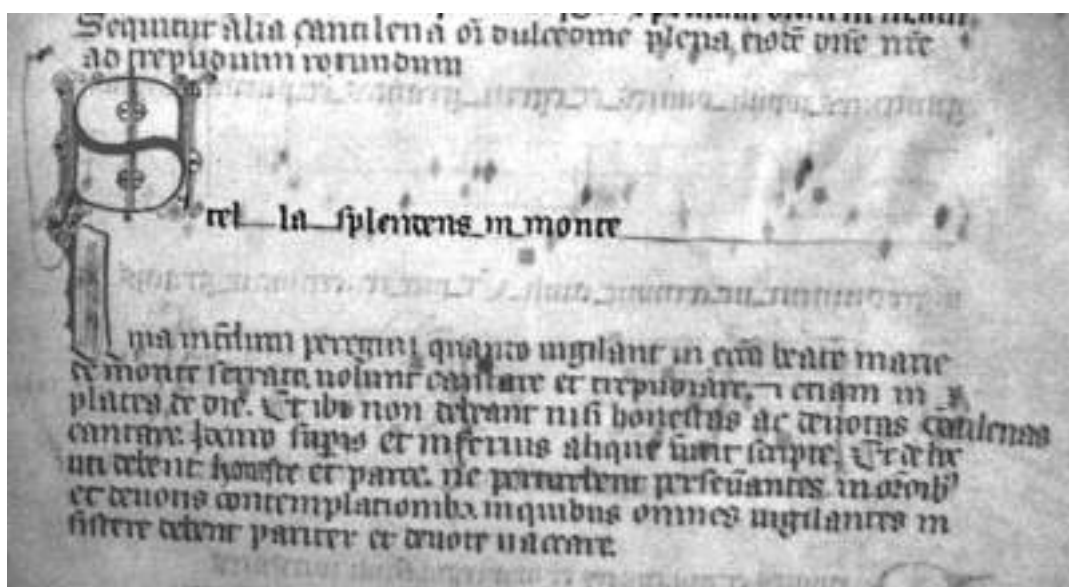 Sequitur alia cantilena oī dulcedine plena, eiusdē dn̄e nr̄e
ad trepudium rotundum
S tel la splendens in monte
Quia int̄dum peregrini quando uigilant in ecc̄a beate marie
de monte serrato uolunt cantare et trepudiare, ⁊ etiam in
platea de die. Et ibi non debeant nisi honestas ac deuotas cātilenas
cantare: s̄upius et inferius alique sūnt scripte. Et de hoc
uti debent honeste et parce. ne perturbent perseūantes in or̄oīb⁹
et deuotis contemplationib⁊ inquibus omnes uigilantes in
sistere debent pariter et deuote uaccare.